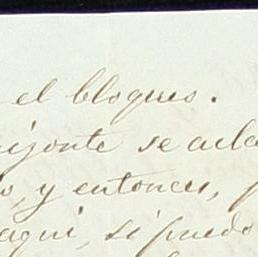 el bloqueo.
izonte se acla
o, y entonces, p
aqui, si puedo